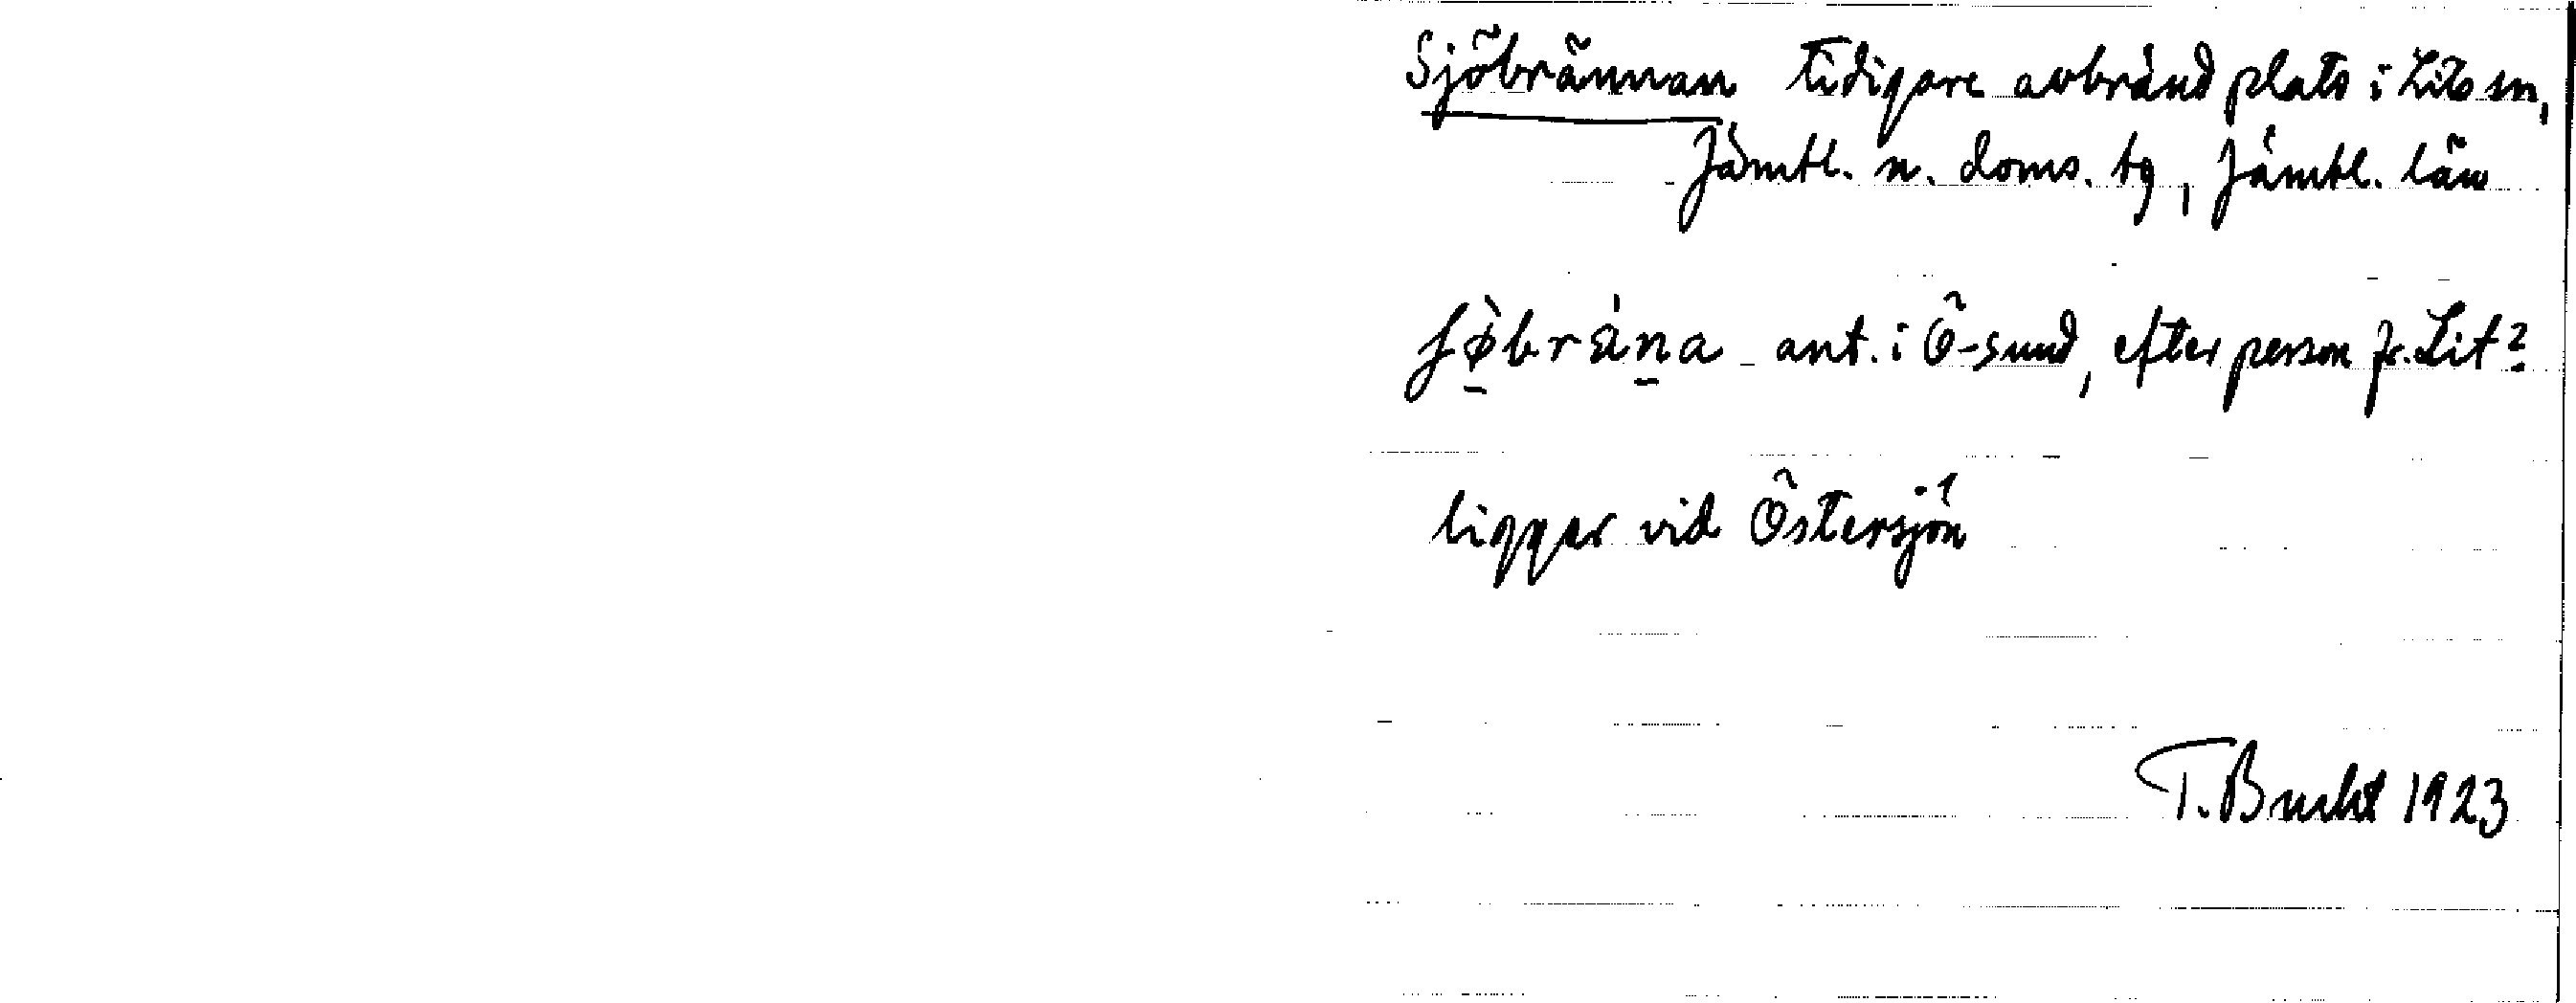 Sjöbrännan tidigare avbränd plats i Lits sn,
Jämtl. n. doms. tg, Jämtl. län
ʃø̀bráṉa ant. i Ö-sund, efter person fr. Lit?
ligger vid Östersjön
T. Bucht 1923